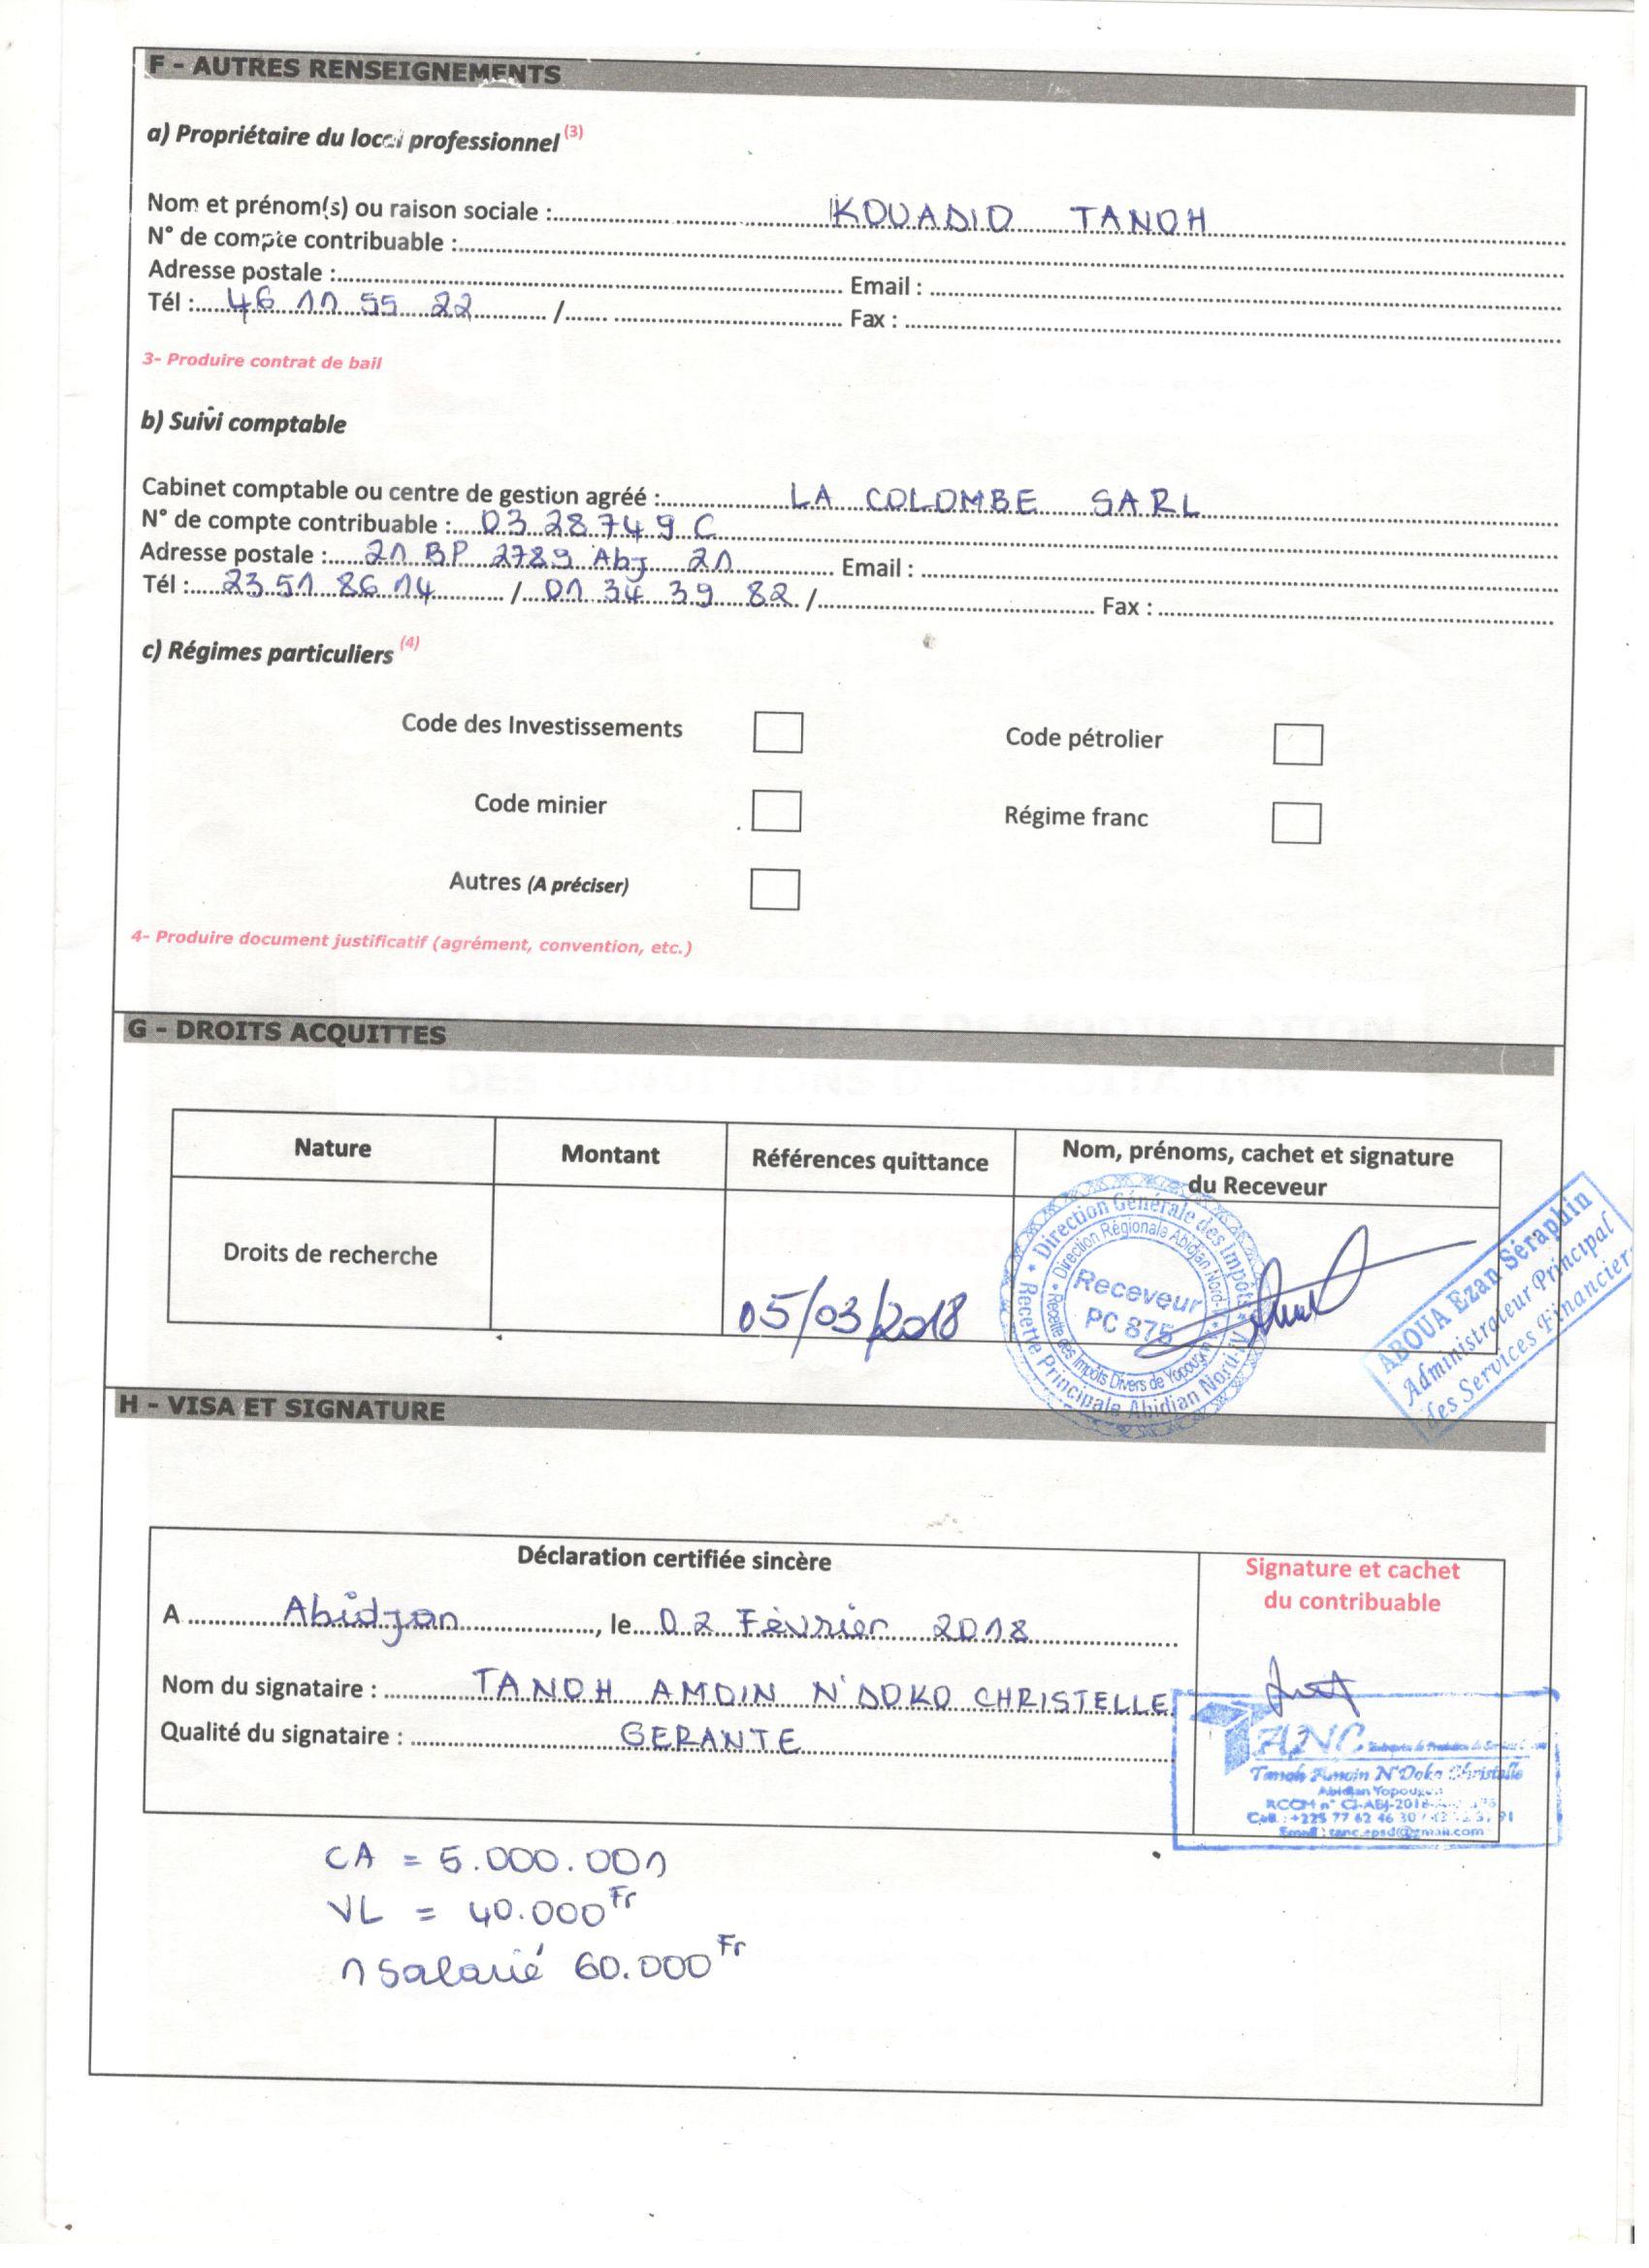 F - AUTRES RENSEIGNEMENTS
a) Propriétaire du local professionnel (3)
Nom et prénom(s) ou raison sociale : KOUADIO TANOH
N° de compte contribuable :
Adresse postale : Email :
Tél : 46 11 55 22 / Fax :
3- Produire contrat de bail
b) Suivi comptable
Cabinet comptable ou centre de gestion agréé : LA COLOMBE SARL
N° de compte contribuable : 03 28 749 C
Adresse postale : 21 BP 2789 Abj 21 Email :
Tél : 23 51 86 14 / 01 34 39 82 / Fax :
c) Régimes particuliers (4)
Code des Investissements Code pétrolier
Code minier Régime franc
Autres (A préciser)
4- Produire document justificatif (agrément, convention, etc.)
G - DROITS ACQUITTES
Nature Montant Références quittance Nom, prénoms, cachet et signature du Receveur
Droits de recherche 05/03/2018
Direction Générale des Impôts
Direction Régionale Abidjan Nord
Receveur
PC 875
Recette des Impôts Divers de Yopougon
Recette Principale Abidjan Nord
ABOUA Ezan Séraphin
Administrateur Principal
des Services Financiers
H - VISA ET SIGNATURE
Déclaration certifiée sincère
Signature et cachet
du contribuable
A Abidjan, le 02 Fèvrier 2018
Nom du signataire : TANOH AMOIN N'DOKO CHRISTELLE
Qualité du signataire : GERANTE
TANC
Tanoh Amoin N'Doko Christelle
Abidjan Yopougon
RCCM n° CI-ABJ-2018-
Cell : +225 77 62 46 30 /
Email : tanc.epsd@gmail.com
CA = 5.000.001
VL = 40.000 Fr
1 salarié 60.000 Fr